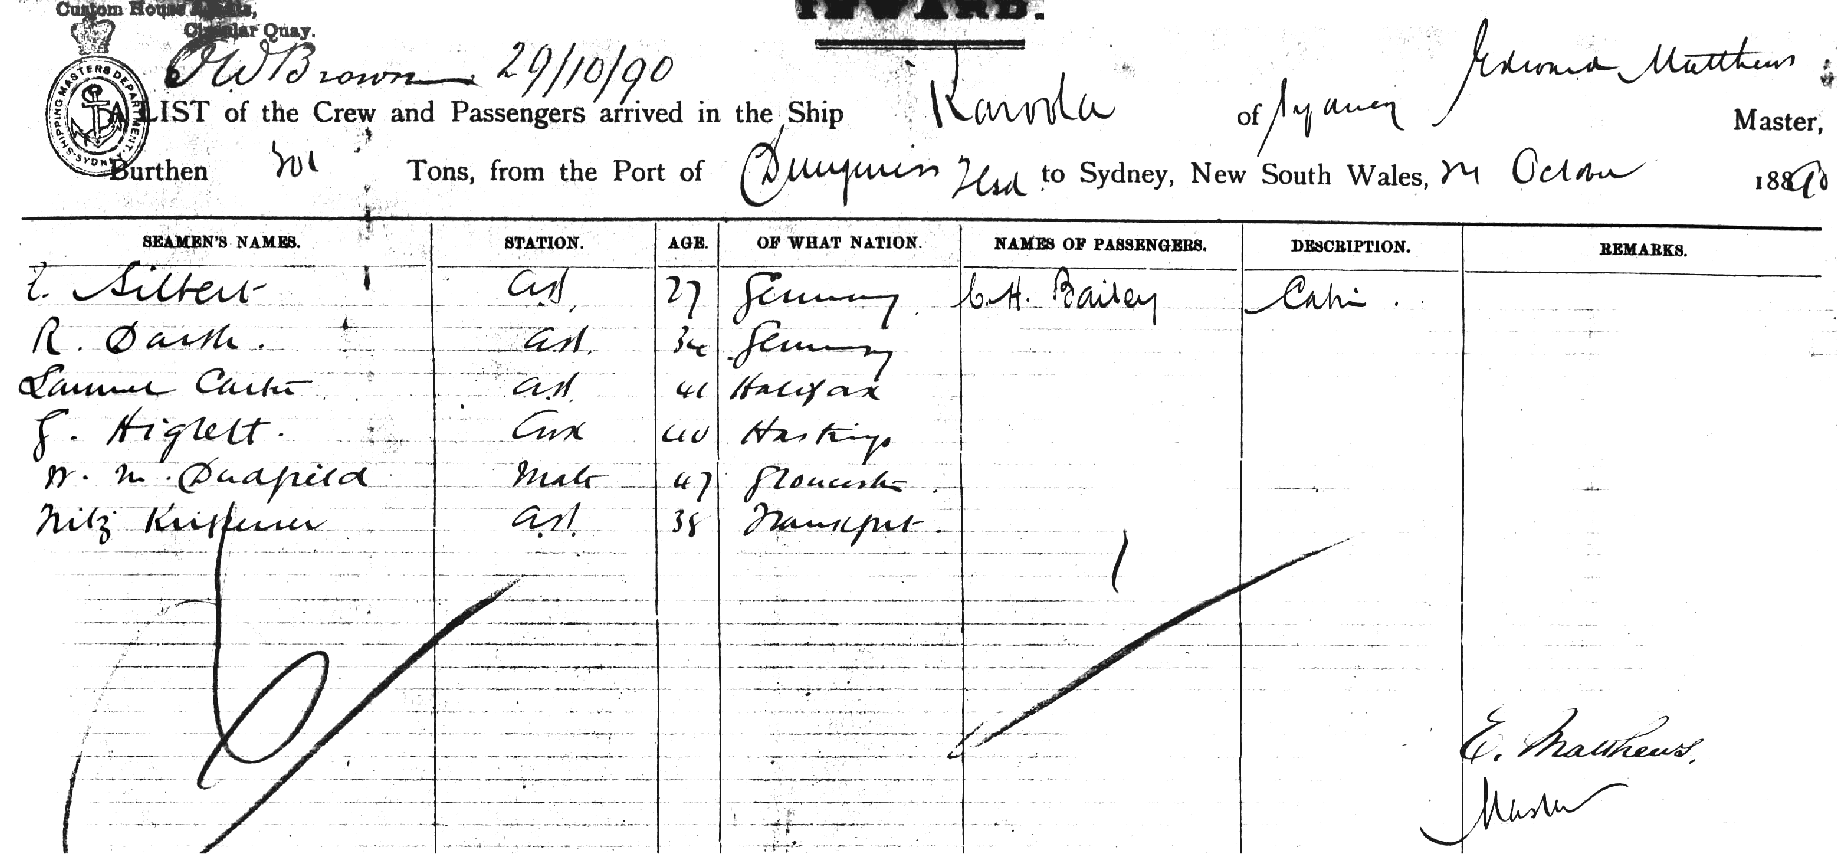 Custom House
Circular Quay.
INWARD.
SHIPPING MASTERS DEPARTMENT. SYDNEY
O W Brown 29/10/90
A LIST of the Crew and Passengers arrived in the Ship of Sydney Edward Matthews Master,
Burthen Tons, from the Port of Hd to Sydney, New South Wales, October 1890
SEAMEN'S NAMES. STATION. AGE. OF WHAT NATION. NAMES OF PASSENGERS. DESCRIPTION. REMARKS.
Silbert A.B. 27 Germany C. H. Bailey Cabin.
R. A.B. 34 Germany
Samuel Carter A.B. 41 Halifax
G. Higlett. Cook 40 Hastings
W. M. Dudfield Mate 47 Gloucester
Fritz A.B. 38 Frankfurt.
E. Matthews.
Master